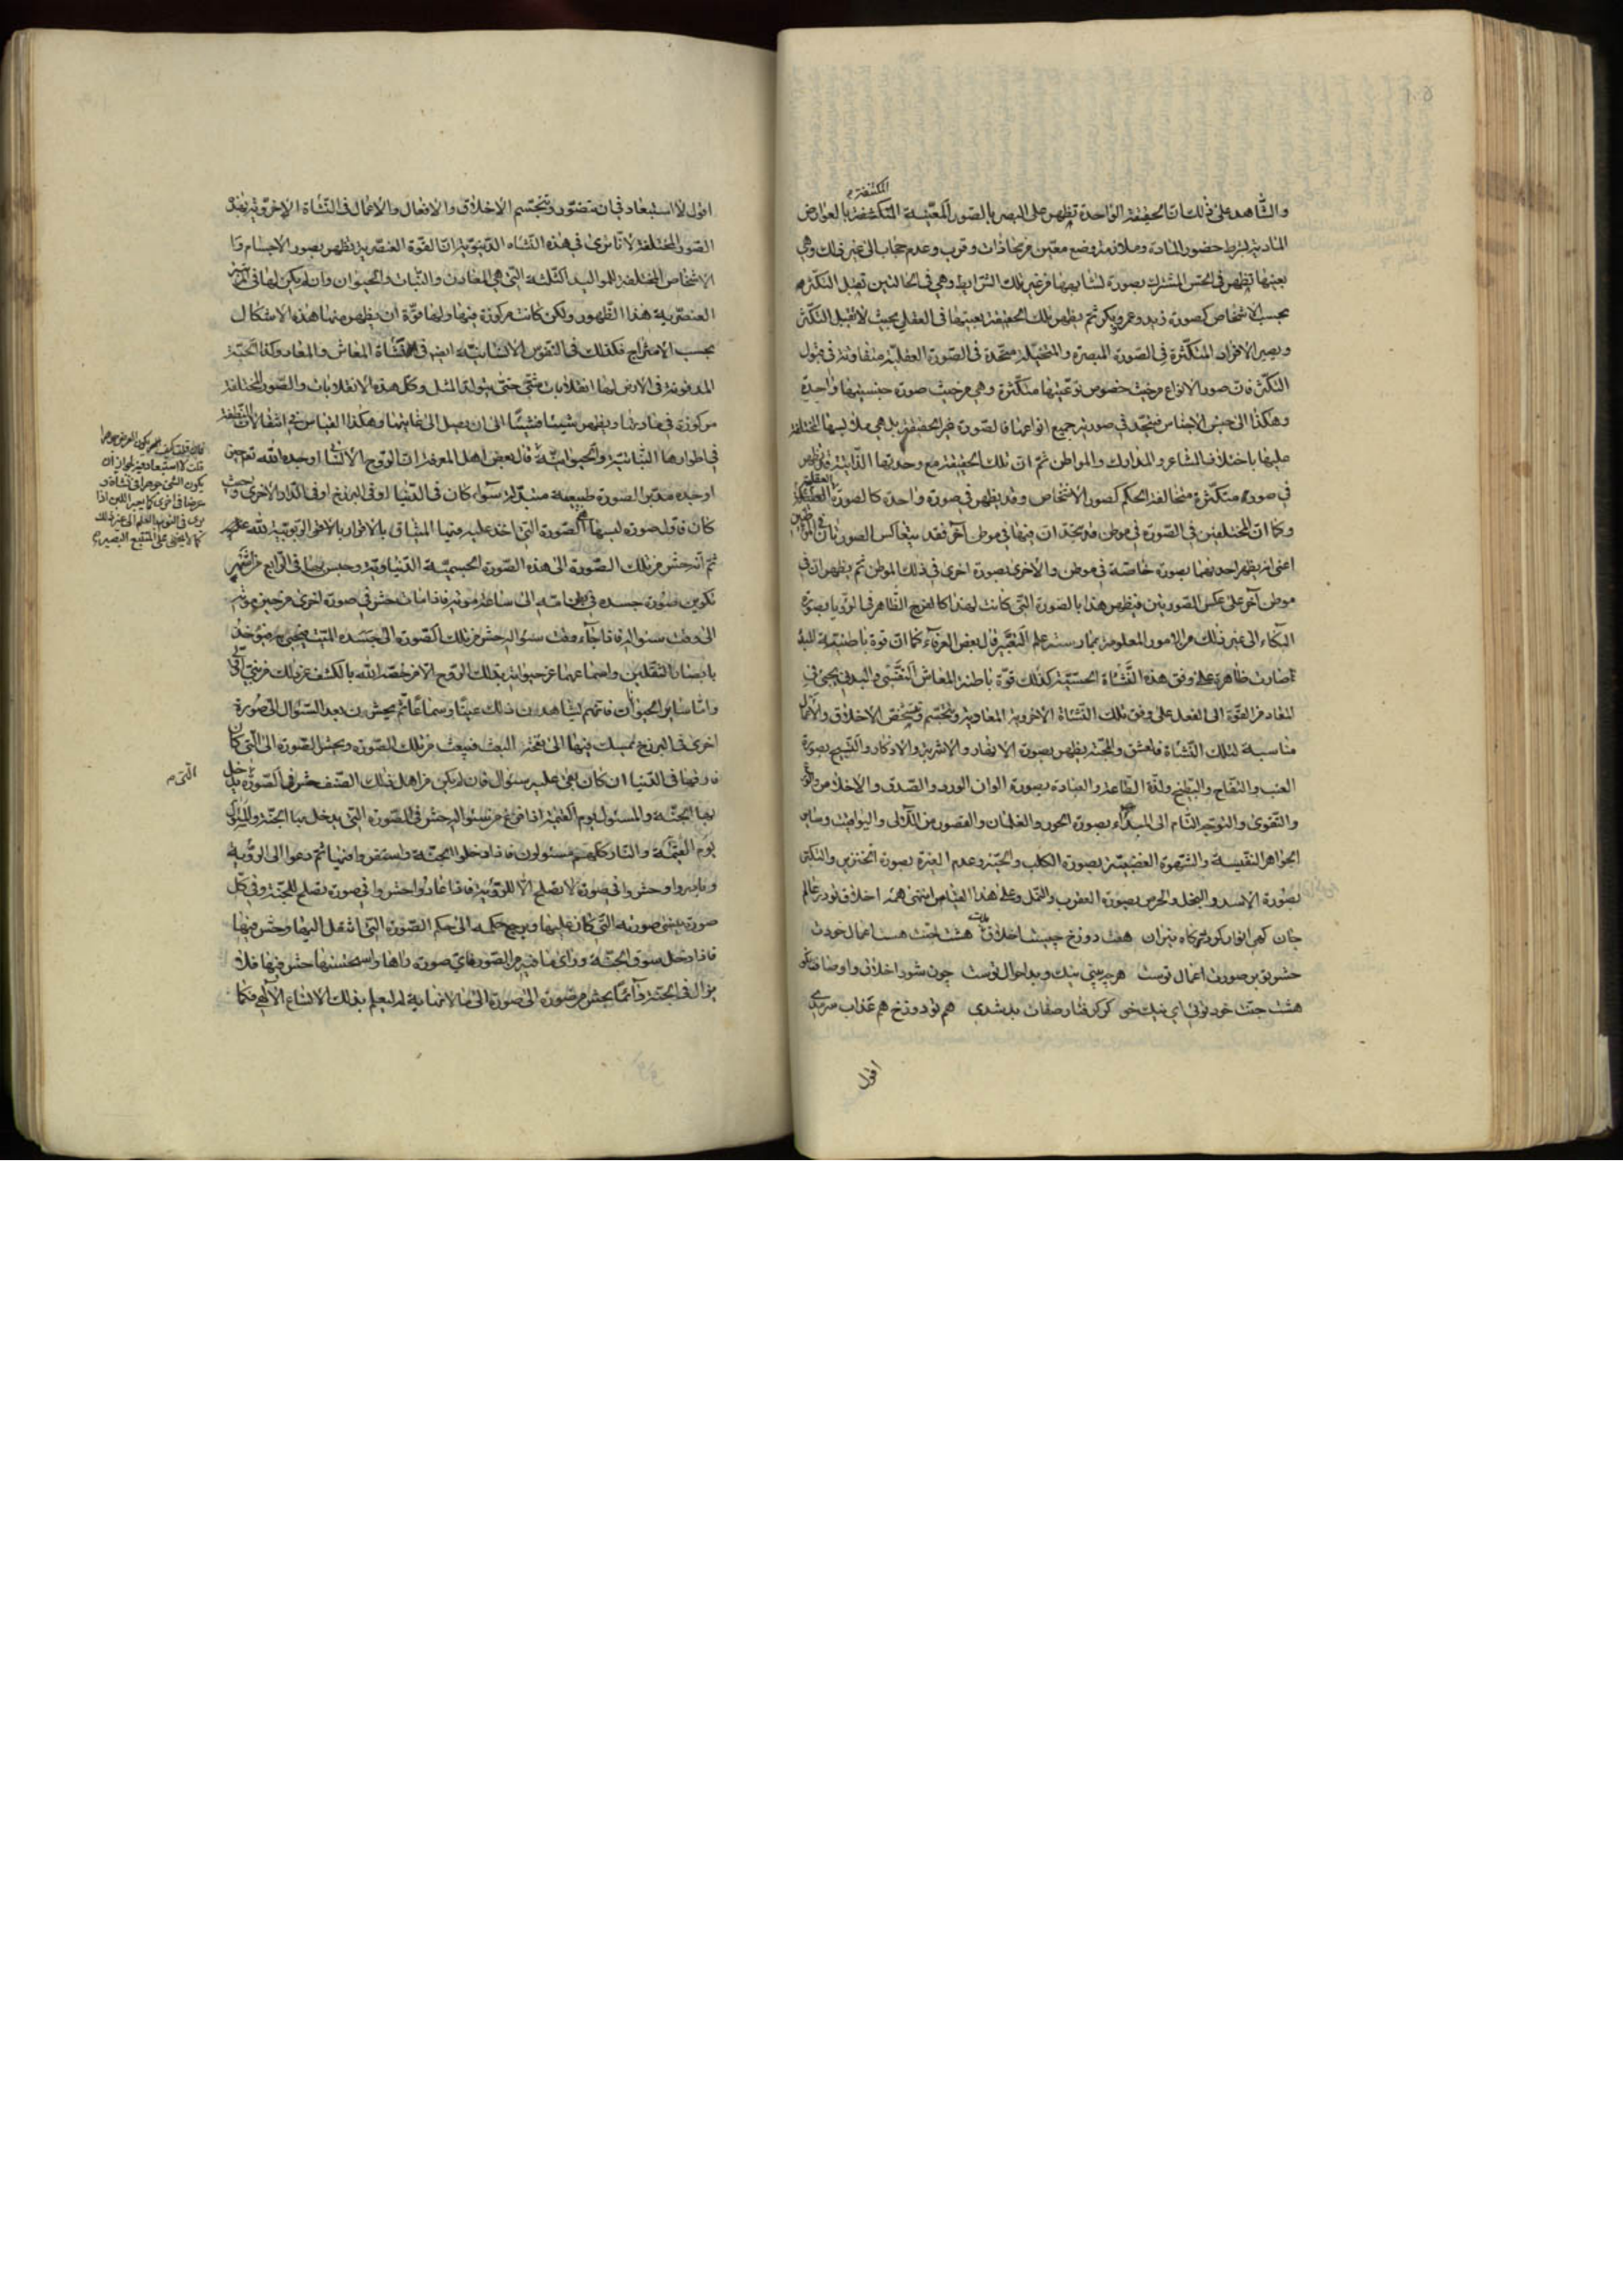 المكشفة م
والشاهد على ذلك ان الحقيقة الواحدة تظهر على البصر بالصور المعينة المتكشفة بالعوارض
المادية بشرط حضور المادة وملازمة وضع معين من محاذات وقرب وعدم حجاب الى غير ذلك وهي
بعينها تظهر في الحس المشترك بصورة تشابهها من غير تلك الشرايط وهي في الحالتين تقبل التكثر
بحسب الاشخاص كصورة زيد وعمرو وبكر ثم يظهر تلك الحقيقة بعينها في العقل بحيث لا تقبل التكثر
ويصير الافراد المتكثرة في الصورة المبصرة والمتخيلة متحدة في الصورة العقلية متفاوتة في قبول
التكثر فان صور الانواع من حيث خصوص نوعيتها متكثرة وهي من حيث صورة جنسيتها واحدة
وهكذا الى جنس الاجناس فيتحد في صورته جميع انواعها فالصورة غير الحقيقة بل هي ملابسها المختلفة
عليها باختلاف المشاعر والمدارك والمواطن ثم ان تلك الحقيقة مع وحدتها الذاتية قد يظهر
في صورة متكثرة متخالفة الحكم كصور الاشخاص وقد يظهر في صورة واحدة كالصورة العقلية
وكما ان المختلفين في الصورة في موطن قد يتحدان فيها في موطن آخر فقد يتعاكس الصورتان في الموطنين
اعني انه يظهر احديهما بصورة خاصة في موطن والاخرى بصورة اخرى في ذلك الموطن ثم يظهران في
موطن آخر على عكس الصورتين فيظهر هذا بالصورة التي كانت لهذا كالفرح الظاهر في الرؤيا بصورة
البكاء الى غير ذلك من الامور المعلومة بممارسة علم التعبير قال بعض العرفاء كما ان قوة باطنية للبدن
صارت ظاهرة على وفق هذه النشاة الحسية كذلك قوة باطنة المعاش النفسي والبدني يجيئ في
المعاد من القوة الى الفعل على وفق تلك النشاة الاخروية المعادية ويتجسم ويتشخص الاخلاق والاعمال
مناسبة لتلك النشاة فالعشق والمحبة يظهر بصورة الانهار والاشربة والاذكار والتسبيح بصورة
العنب والتفاح والبطيخ ولذة الطاعة والعبادة بصورة الوان الورد والصدق والاخلاص
والتقوى والتوجه التام الى المبداء بصورة الحور والغلمان والقصور من اللآلى واليواقيت وساير
الجواهر النفيسة والشهوة الغضبية بصورة الكلب والحية وعدم الغيرة بصورة الخنزير والتكبر
بصورة الاسد والبخل والحرص بصورة العقرب والنمل وعلى هذا القياس همه اخلاق تو در عالم
جان كهى انوار كردد كاه نيران هفت دوزخ چيست اخلاق بدت هشت جنت هست اعمال خودت
حشر تو بر صورت اعمال توست هر چه بينى نيك وبد احوال توست چون شود اخلاق واوصافت نكو
هشت جنت خود توئى اى نيك خو كر كرفتار صفات بد شدى هم تو دوزخ هم عذاب سرمدى
اقول
اقول لا استبعاد في ان يتصور ويتجسم الاخلاق والافعال والاعمال في النشاة الاخروية بهذه
الصور المختلفة لانا نرى في هذه النشاه الدنيوية ان القوة العنصرية يظهر بصور الاجسام و
الاشخاص المختلفة للمواليد الثلثة التي هي المعادن والنبات والحيوان وان لم يكن لها في
العنصرية هذا الظهور ولكن كانت مركوزة فيها ولها قوة ان يظهر منها هذه الاشكال
بحسب الامتزاج فكذلك في النفوس الانسانية ايضا في نشاة المعاش والمعاد وكذا الحبة
المدفونة في الارض لها انقلابات شتى حتى يتولد المثل وكل هذه الانقلابات والصور المختلفة
مركوزة في ويظهر شيئا فشيئا الى ان يصل الى غايتها وهكذا القياس في انتقالات النطفة
في اطوارها النباتية والحيوانية قال بعض اهل المعرفة ان الروح الانسانى اوجده الله تعالى حين
اوجده مدبر الصورة طبيعية سواء كان في الدنيا او في البرزخ او في الدار الاخرى وحيث
كان فاول صورة لبسها الصورة التي اخذ عليه فيها الميثاق بالاقرار بالربوبية لله عليه
ثم انه حشر من تلك الصورة الى هذه الصورة الجسمية الدنياوية وحبس بها في الرابع من شهر
تكوين صورة جسده في بطن امه الى ساعة موته فاذا مات حشر في صورة اخرى من حين موته
الى وقت سئواله فاذا جاء وقت سئواله حشر من تلك الصورة الى جسده الميت فيحيى به ويؤخذ
بابصار الثقلين واسماعهما عن حيوته بذلك الروح الا من خصه الله بالكشف عن ذلك من نبى او ولى
واما ساير الحيوان فانهم تشاهدون ذلك عينا وسماعا ثم يحشر بعد السئوال الى صورة
اخرى في البرزخ يمسك فيها الى نفخة البعث فيبعث من تلك الصورة ويحشر الى الصورة التي كان
فارقها في الدنيا ان كان بقى عليه سئوال فان لم يكن من اهل ذلك الصنف حشر في الصورة التي يدخل
بها الجنة والمسئول يوم القيمة اذا فرغ من سئواله حشر في الصورة التي يدخل بها الجنة والمسئولون
يوم القيمة والنار كلهم مسئولون فاذا دخلوا الجنة واستقروا فيها ثم دعوا الى الرؤية
وبادروا حشروا في صورة لا تصلح الا للرؤية فاذا عادوا حشروا في صورة تصلح للجنة وفي كل
صورة ينسى صورته التي كان عليها ويرجع حكمه الى حكم الصورة التي انتقل اليها وحشر فيها
فاذا دخل سوق الجنة وراى ما فيه من الصور فاى صورة راها واستحسنها حشر فيها فلا
يزال في الجنة دائما يحشر من صورة الى صورة الى ما لا نهاية له ليعلم بذلك الاتساع الالهى فكما
فان قلت كيف يكون العرض جوهرا
قلت لا استبعاد فيه لجواز ان
يكون الشئ جوهرا في نشاة و
عرضا في اخرى كما يعبر اللبن اذا
يرى في النوم بالعلم الى غير ذلك
كما لا يخفى على المتتبع البصير
التي م